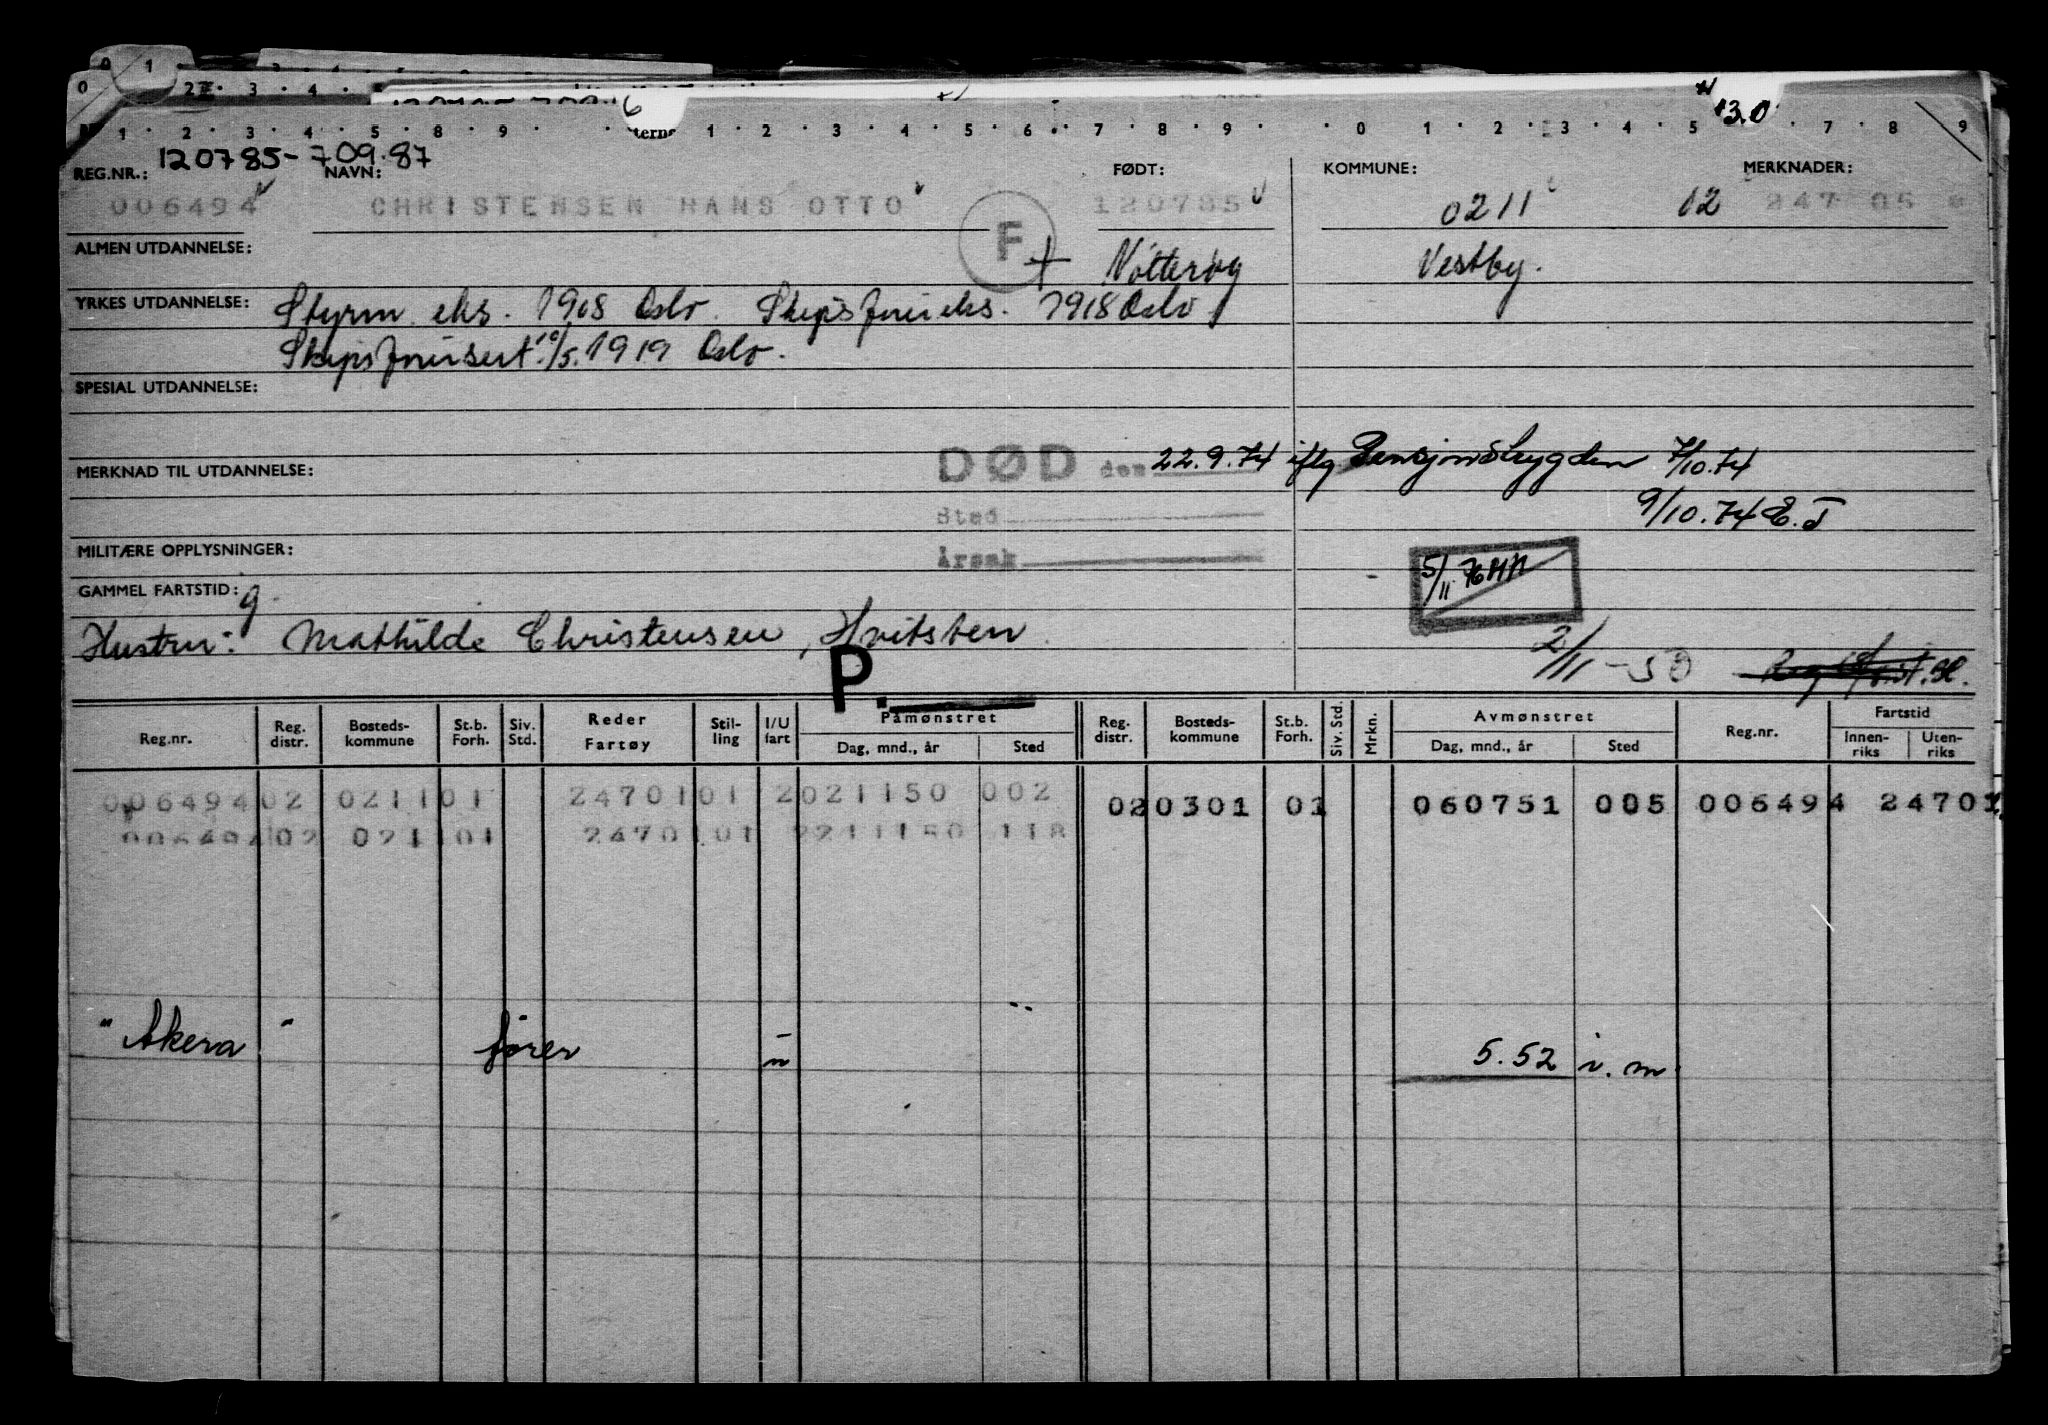 0 1
0 2 3 4
6
1 2 3 4 5 6 8 9 terne 1 2 3 4 5 6 7 8 9 0 1 2 3 4 5 130 7 8 9
120785-709.87
REG.NR.: NAVN: FØDT: KOMMUNE: MERKNADER:
006494 CHRISTENSEN HANS OTTO 120785 0211 12 247 05
F
ALMEN UTDANNELSE: + Nötteröy Vestby.
YRKES UTDANNELSE: Styrm. eks. 1908 Oslo. Skipsførereks. 1918 Oslo
Skipsførersert. 10/5.1919 Oslo.
SPESIAL UTDANNELSE:
DØD den 22.9.74 iflg Pensjonstrygden 7/10.74
MERKNAD TIL UTDANNELSE:
Sted 9/10.74 E.T
MILITÆRE OPPLYSNINGER: Årsak
5/11 76 HH
GAMMEL FARTSTID: g
Hustru: Mathilde Christensen, Hvitsten
2/11-50
P.
Reg.nr. Reg. distr. Bosteds-kommune St.b. Forh. Siv. Std. Reder Fartøy Stil-ling I/U fart Påmønstret Dag, mnd., år Sted Reg. distr. Bosteds-kommune St.b. Forh. Siv. Std. Mrkn. Avmønstret Dag, mnd., år Sted Reg.nr. Fartstid Innen-riks Uten-riks
006494 02 0211 01 2470101 2 021150 002 02 0301 01 060751 005 006494 24701
006494 02 0211 01 2470101 2 211150 118
"Akera" fører u 5.52 i.m.